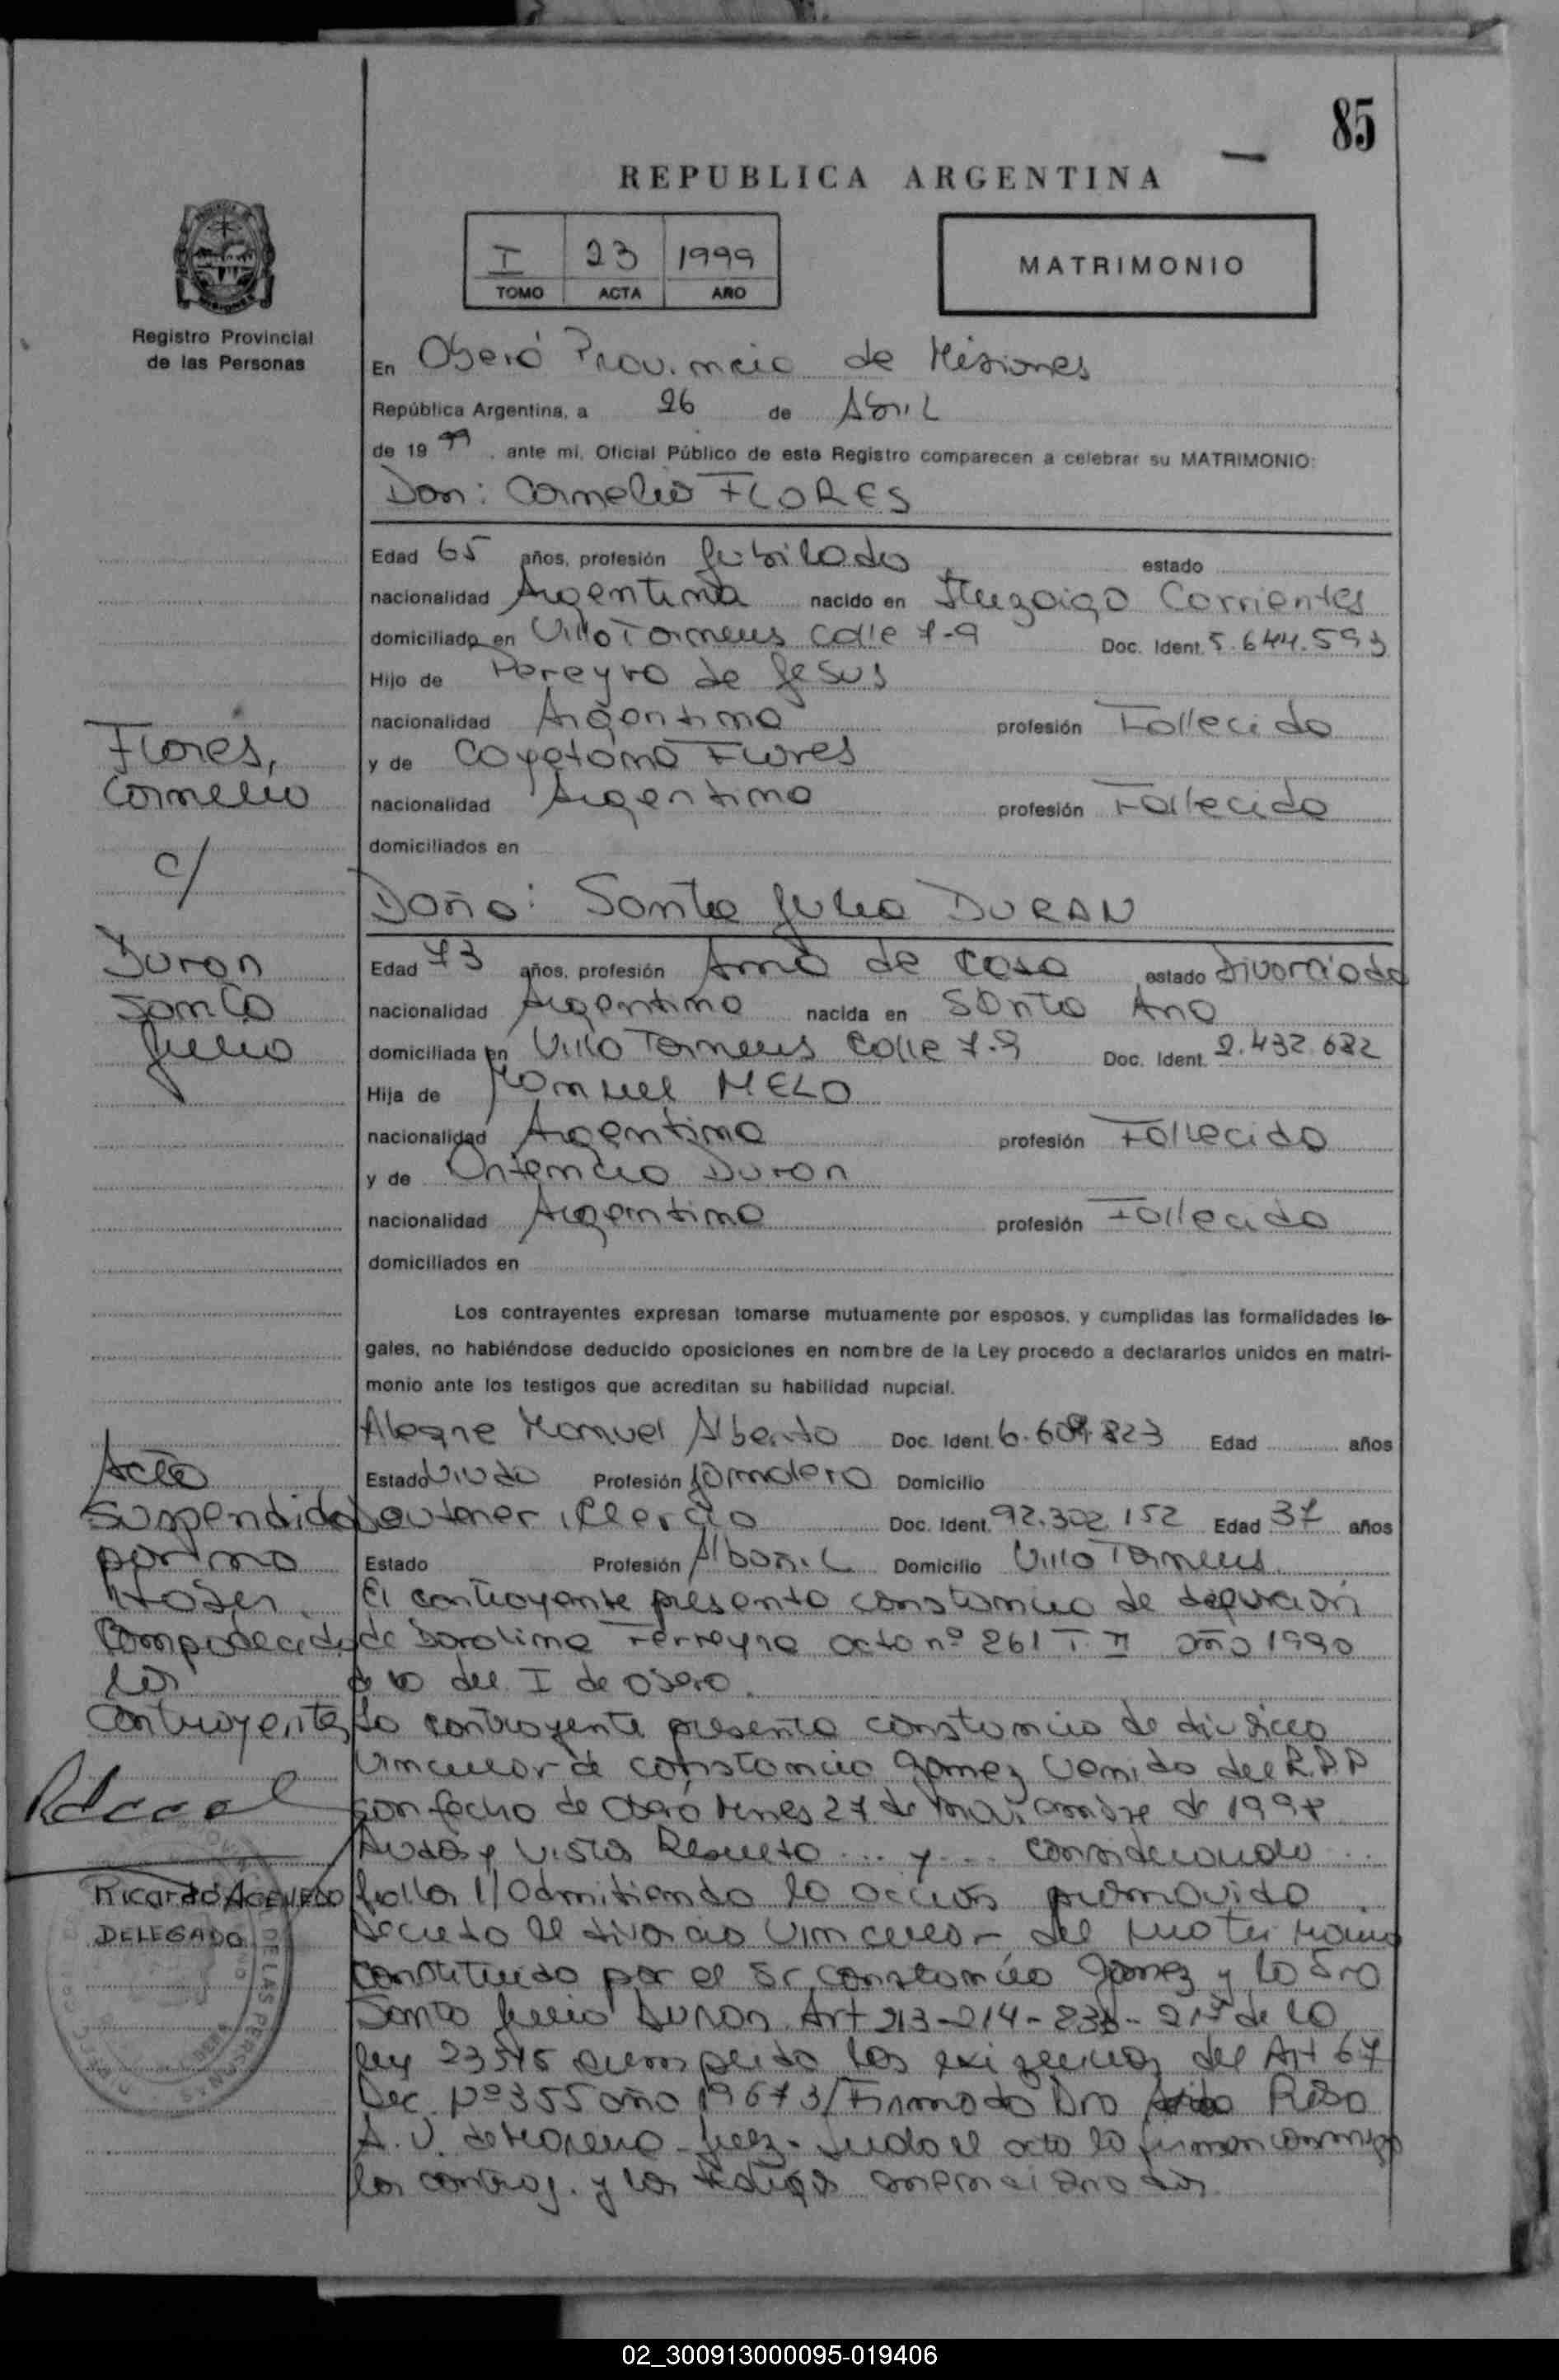 85
REPUBLICA ARGENTINA
I 23 1999
TOMO ACTA AÑO
MATRIMONIO
Registro Provincial
de las Personas
En Oberá Provincia de Misiones
República Argentina, a 26 de Abril
de 19 99, ante mi, Oficial Público de este Registro comparecen a celebrar su MATRIMONIO:
Don: Cornelio FLORES
Edad 65 años, profesión Jubilado estado
nacionalidad Argentina nacido en Ituzaigo Corrientes
domiciliado en Villa Torneus Calle 7-9 Doc. Ident. 5.644.593
Hijo de Pereyra de Jesus
nacionalidad Argentina profesión Fallecido
y de Cayetana Flores
nacionalidad Argentina profesión Fallecida
domiciliados en
Flores,
Cornelio
c/
Duran
Santa
Julia
Doña: Santa Julia DURAN
Edad 73 años, profesión Ama de casa estado Divorciada
nacionalidad Argentina nacida en Santa Ana
domiciliada en Villa Torneus Calle 7-9 Doc. Ident. 2.432.682
Hija de Manuel MELO
nacionalidad Argentina profesión Fallecido
y de Duran
nacionalidad Argentina profesión Fallecida
domiciliados en
Los contrayentes expresan tomarse mutuamente por esposos, y cumplidas las formalidades le-
gales, no habiéndose deducido oposiciones en nombre de la Ley procedo a declararlos unidos en matri-
monio ante los testigos que acreditan su habilidad nupcial.
Alegre Manuel Alberto Doc. Ident. 6.609.823 Edad años
Estado Viudo Profesión Jornalero Domicilio
Doc. Ident. 92.302.152 Edad 37 años
Estado Profesión Albañil Domicilio Villa Torneus
Acta
suspendida
por no
haber
los
contrayentes
Ricardo ACEVEDO
DELEGADO
El contrayente presenta constancia de defunción
de Dorolina Ferreyra acta nº 261 T. II año 1990
de la del. I de Oberá.
La contrayente presenta constancia de divorcio
vincular de Constancio Gomez venido del R.P.P
con fecha de Oberá Mnes 27 de noviembre de 1998
Autos y Vistos Resulto ... y ... considerando ...
fallo 1/ admitiendo la acción promovida
Decreto el divorcio vincular del matrimonio
constituido por el Sr Constancio Gomez y la Sra
Santa Julia Duran Art 213-214- de la
ley 23515 cumplido las exigencias del Art 67
Dec. Nº 355 año 1967 3/ Firmado Dra
A. V. de Moreno - Juez - Leida el acta la firman conmigo
los contray. y los testigos mencionados.
02_300913000095-019406